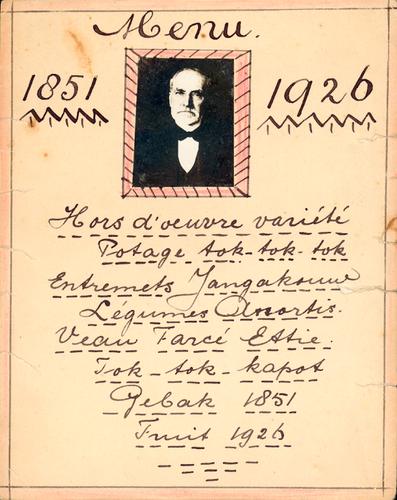 Menu.
1851 1926
Hors d'oeuvre variété
Potage tok-tok-tok
Entremets
Légumes Assortis.
Veau Farcé Ettie.
Tok-tok-kapot
Gebak 1851
Fruit 1926